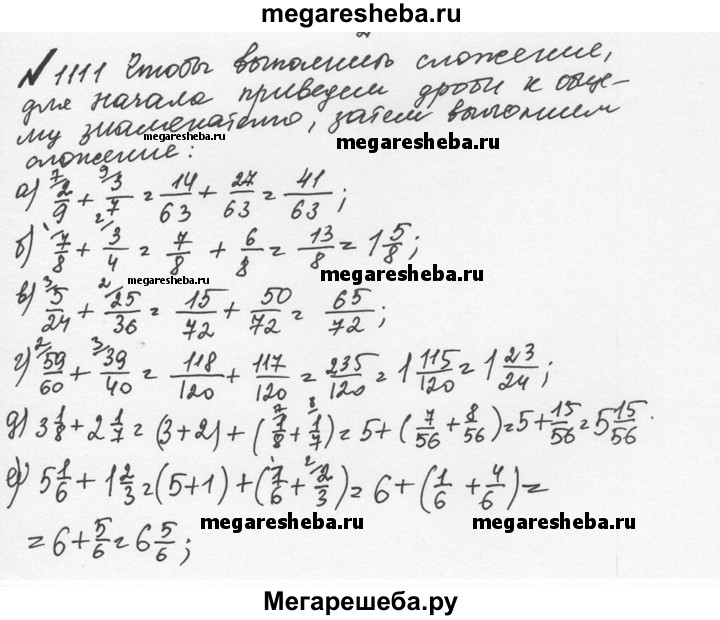 megaresheba.ru
№ 1111 Чтобы выполнить сложение,
для начала приведем дроби к обще-
му знаменателю, затем выполним
megaresheba.ru megaresheba.ru
сложение:
а) ⁷⁾2/9 + ⁹⁾3/7 = 14/63 + 27/63 = 41/63;
б) ¹⁾7/8 + ²⁾3/4 = 7/8 + 6/8 = 13/8 = 1 5/8;
megaresheba.ru megaresheba.ru
в) ³⁾5/24 + ²⁾25/36 = 15/72 + 50/72 = 65/72;
г) ²⁾59/60 + ³⁾39/40 = 118/120 + 117/120 = 235/120 = 1 115/120 = 1 23/24;
megaresheba.ru
д) 3 1/8 + 2 1/7 = (3+2) + (⁷⁾1/8 + ⁸⁾1/7) = 5 + (7/56 + 8/56) = 5 + 15/56 = 5 15/56.
е) 5 1/6 + 1 2/3 = (5+1) + (¹⁾1/6 + ²⁾2/3) = 6 + (1/6 + 4/6) =
= 6 + 5/6 = 6 5/6;
megaresheba.ru megaresheba.ru
Мегарешеба.ру